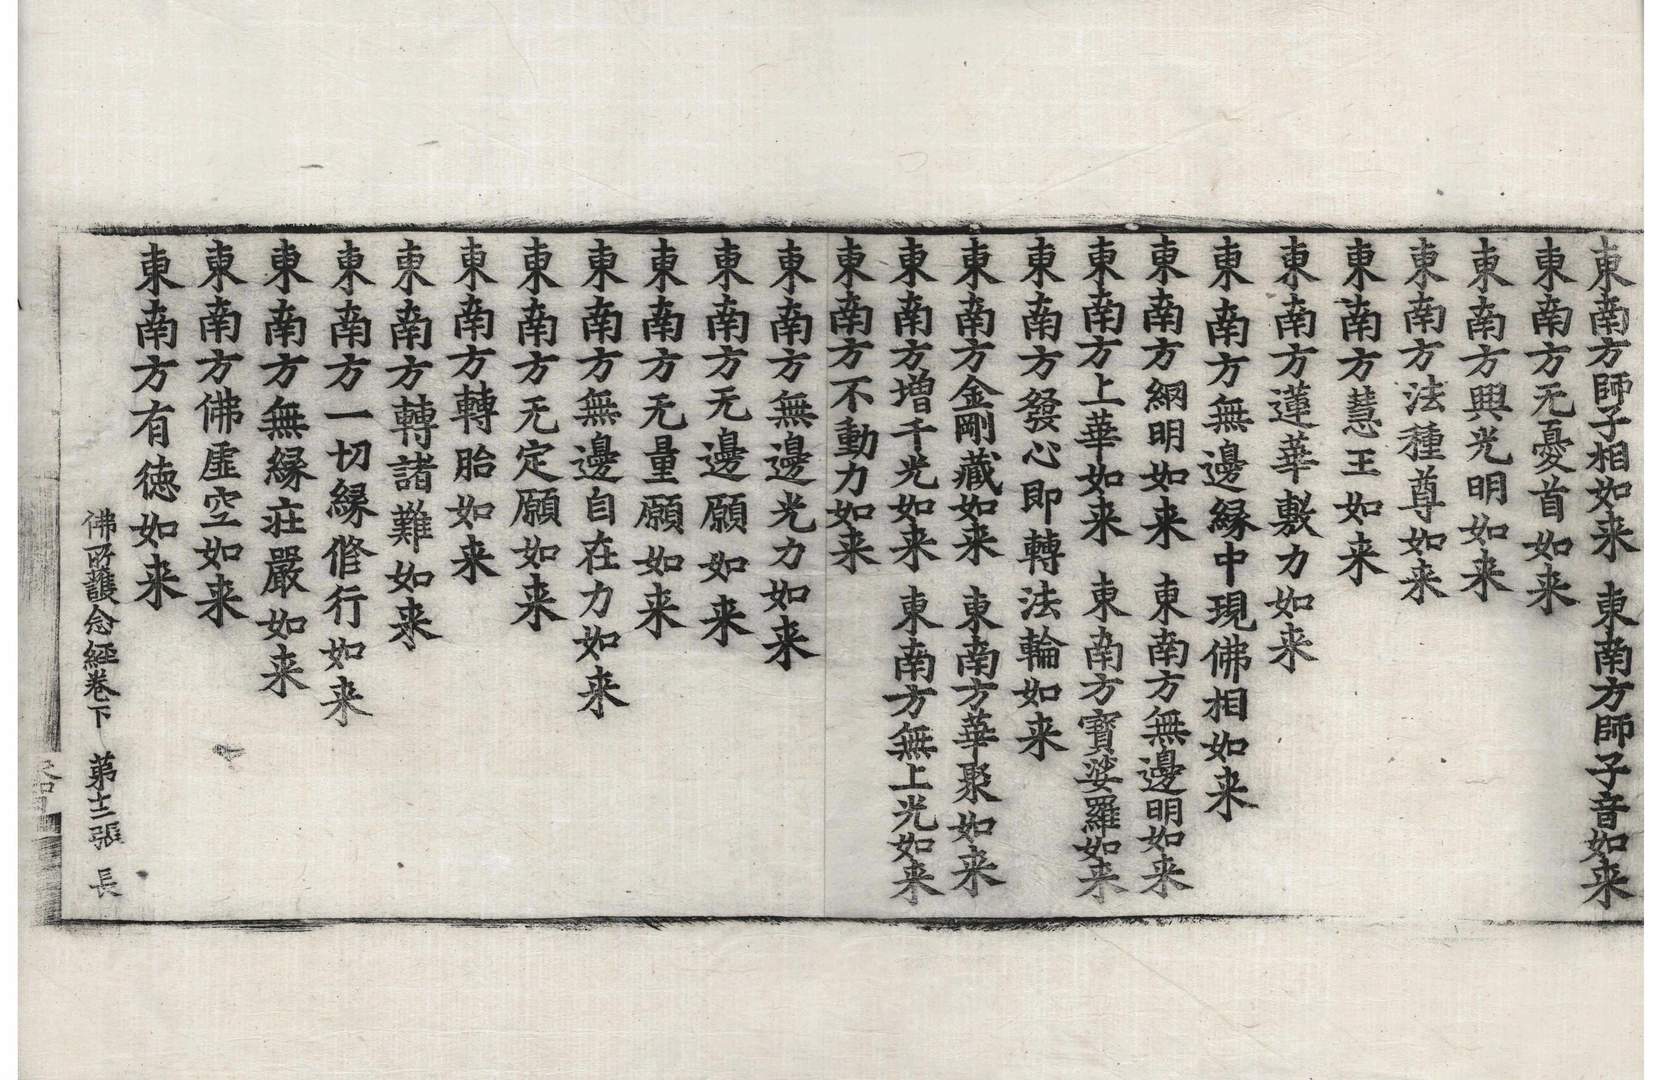 東南方師子相如来 東南方師子音如来
東南方无憂首如来
東南方興光明如来
東南方法種尊如来
東南方慧王如来
東南方蓮華敷力如来
東南方無邊縁中現佛相如来
東南方網明如来 東南方無邊明如来
東南方上華如来 東南方寶娑羅如来
東南方發心即轉法輪如来
東南方金剛藏如来 東南方華聚如来
東南方增千光如来 東南方無上光如来
東南方不動力如来
東南方無邊光力如来
東南方无邊願如来
東南方无量願如来
東南方無邊自在力如来
東南方无定願如来
東南方轉胎如来
東南方轉諸難如来
東南方一切縁修行如来
東南方無縁莊嚴如来
東南方佛虛空如来
東南方有徳如来
佛所護念經卷下 第十三張 長